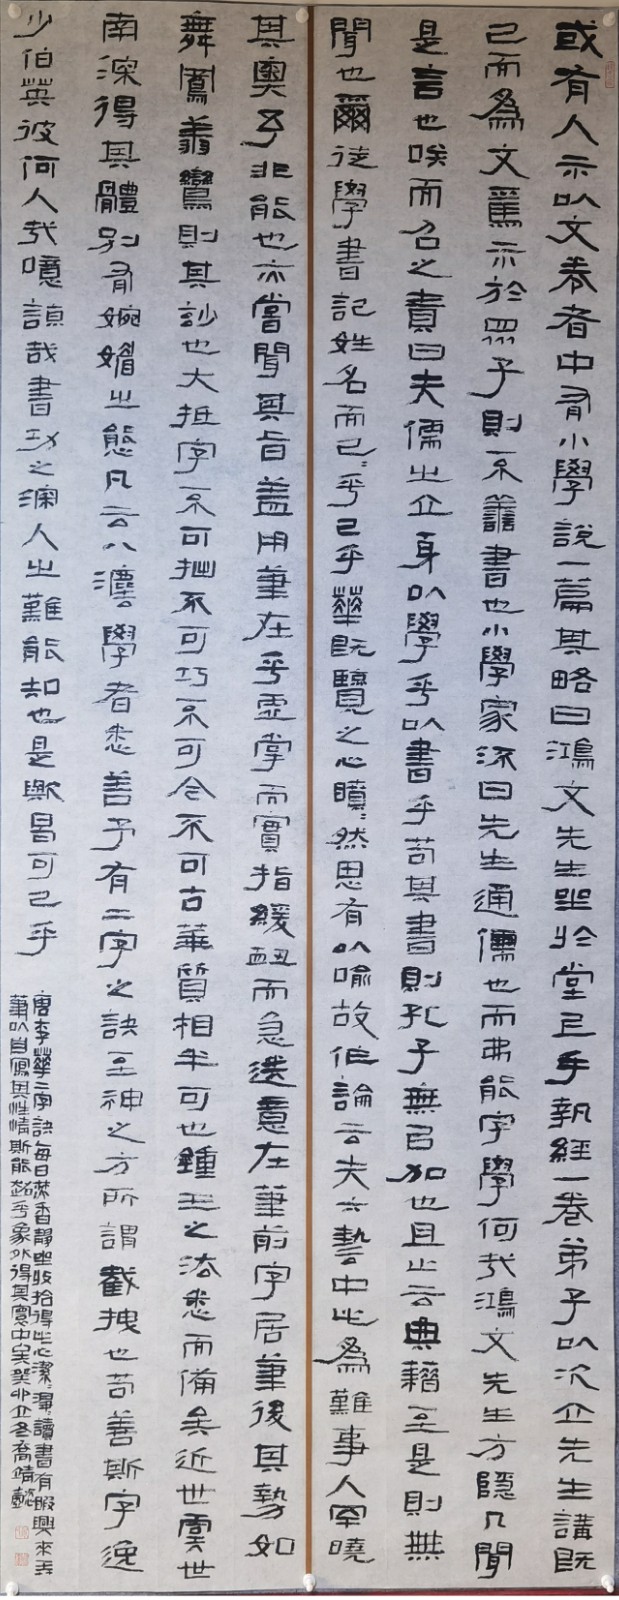 或有人示以文卷者中有小學說一篇其略曰鴻文先生坐於堂已手執經一卷弟子以次立先生講既
已而為文篤示於眾子則不善書也小學家流曰先生通儒也而弗能字學何哉鴻文先生方隱几聞
是言也唉而召之責曰夫儒之立身以學乎以書乎苟其書則孔子無已加也且止云典籍至是則無
聞也爾徒學書記姓名而已乎已乎華既覽之心瞶然思有以喻故作論云夫六藝中此為難事人罕曉
其奧予非能也亦嘗聞其旨蓋用筆在乎虛掌而實指緩衄而急送意在筆前字居筆後其勢如
舞鳳翥鸞則其妙也大抵字不可拙不可巧不可今不可古華質相半可也鍾王之法悉而備矣近世虞世
南深得其體別有婉媚之態凡云八法學者悉善予有二字之訣至神之方所謂截拽也苟善斯字逸
少伯英彼何人哉噫誠哉書功之深人之難能知也是歟曷可已乎
唐李華二字訣每日焚香靜坐收拾得此心潔潔淨淨讀書有暇興來弄
筆以自寫其性情斯能超乎象外得其寰中矣癸卯立冬喬靖懿